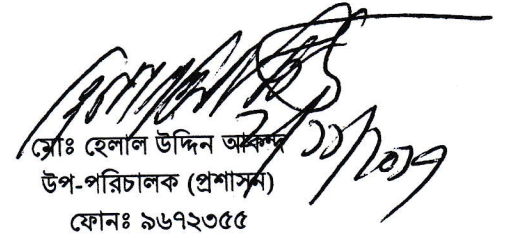 মোঃ হেলাল উদ্দিন আকন্দ
উপ-পরিচালক (প্রশাসন)
ফোনঃ ৯৬৭২৩৫৫